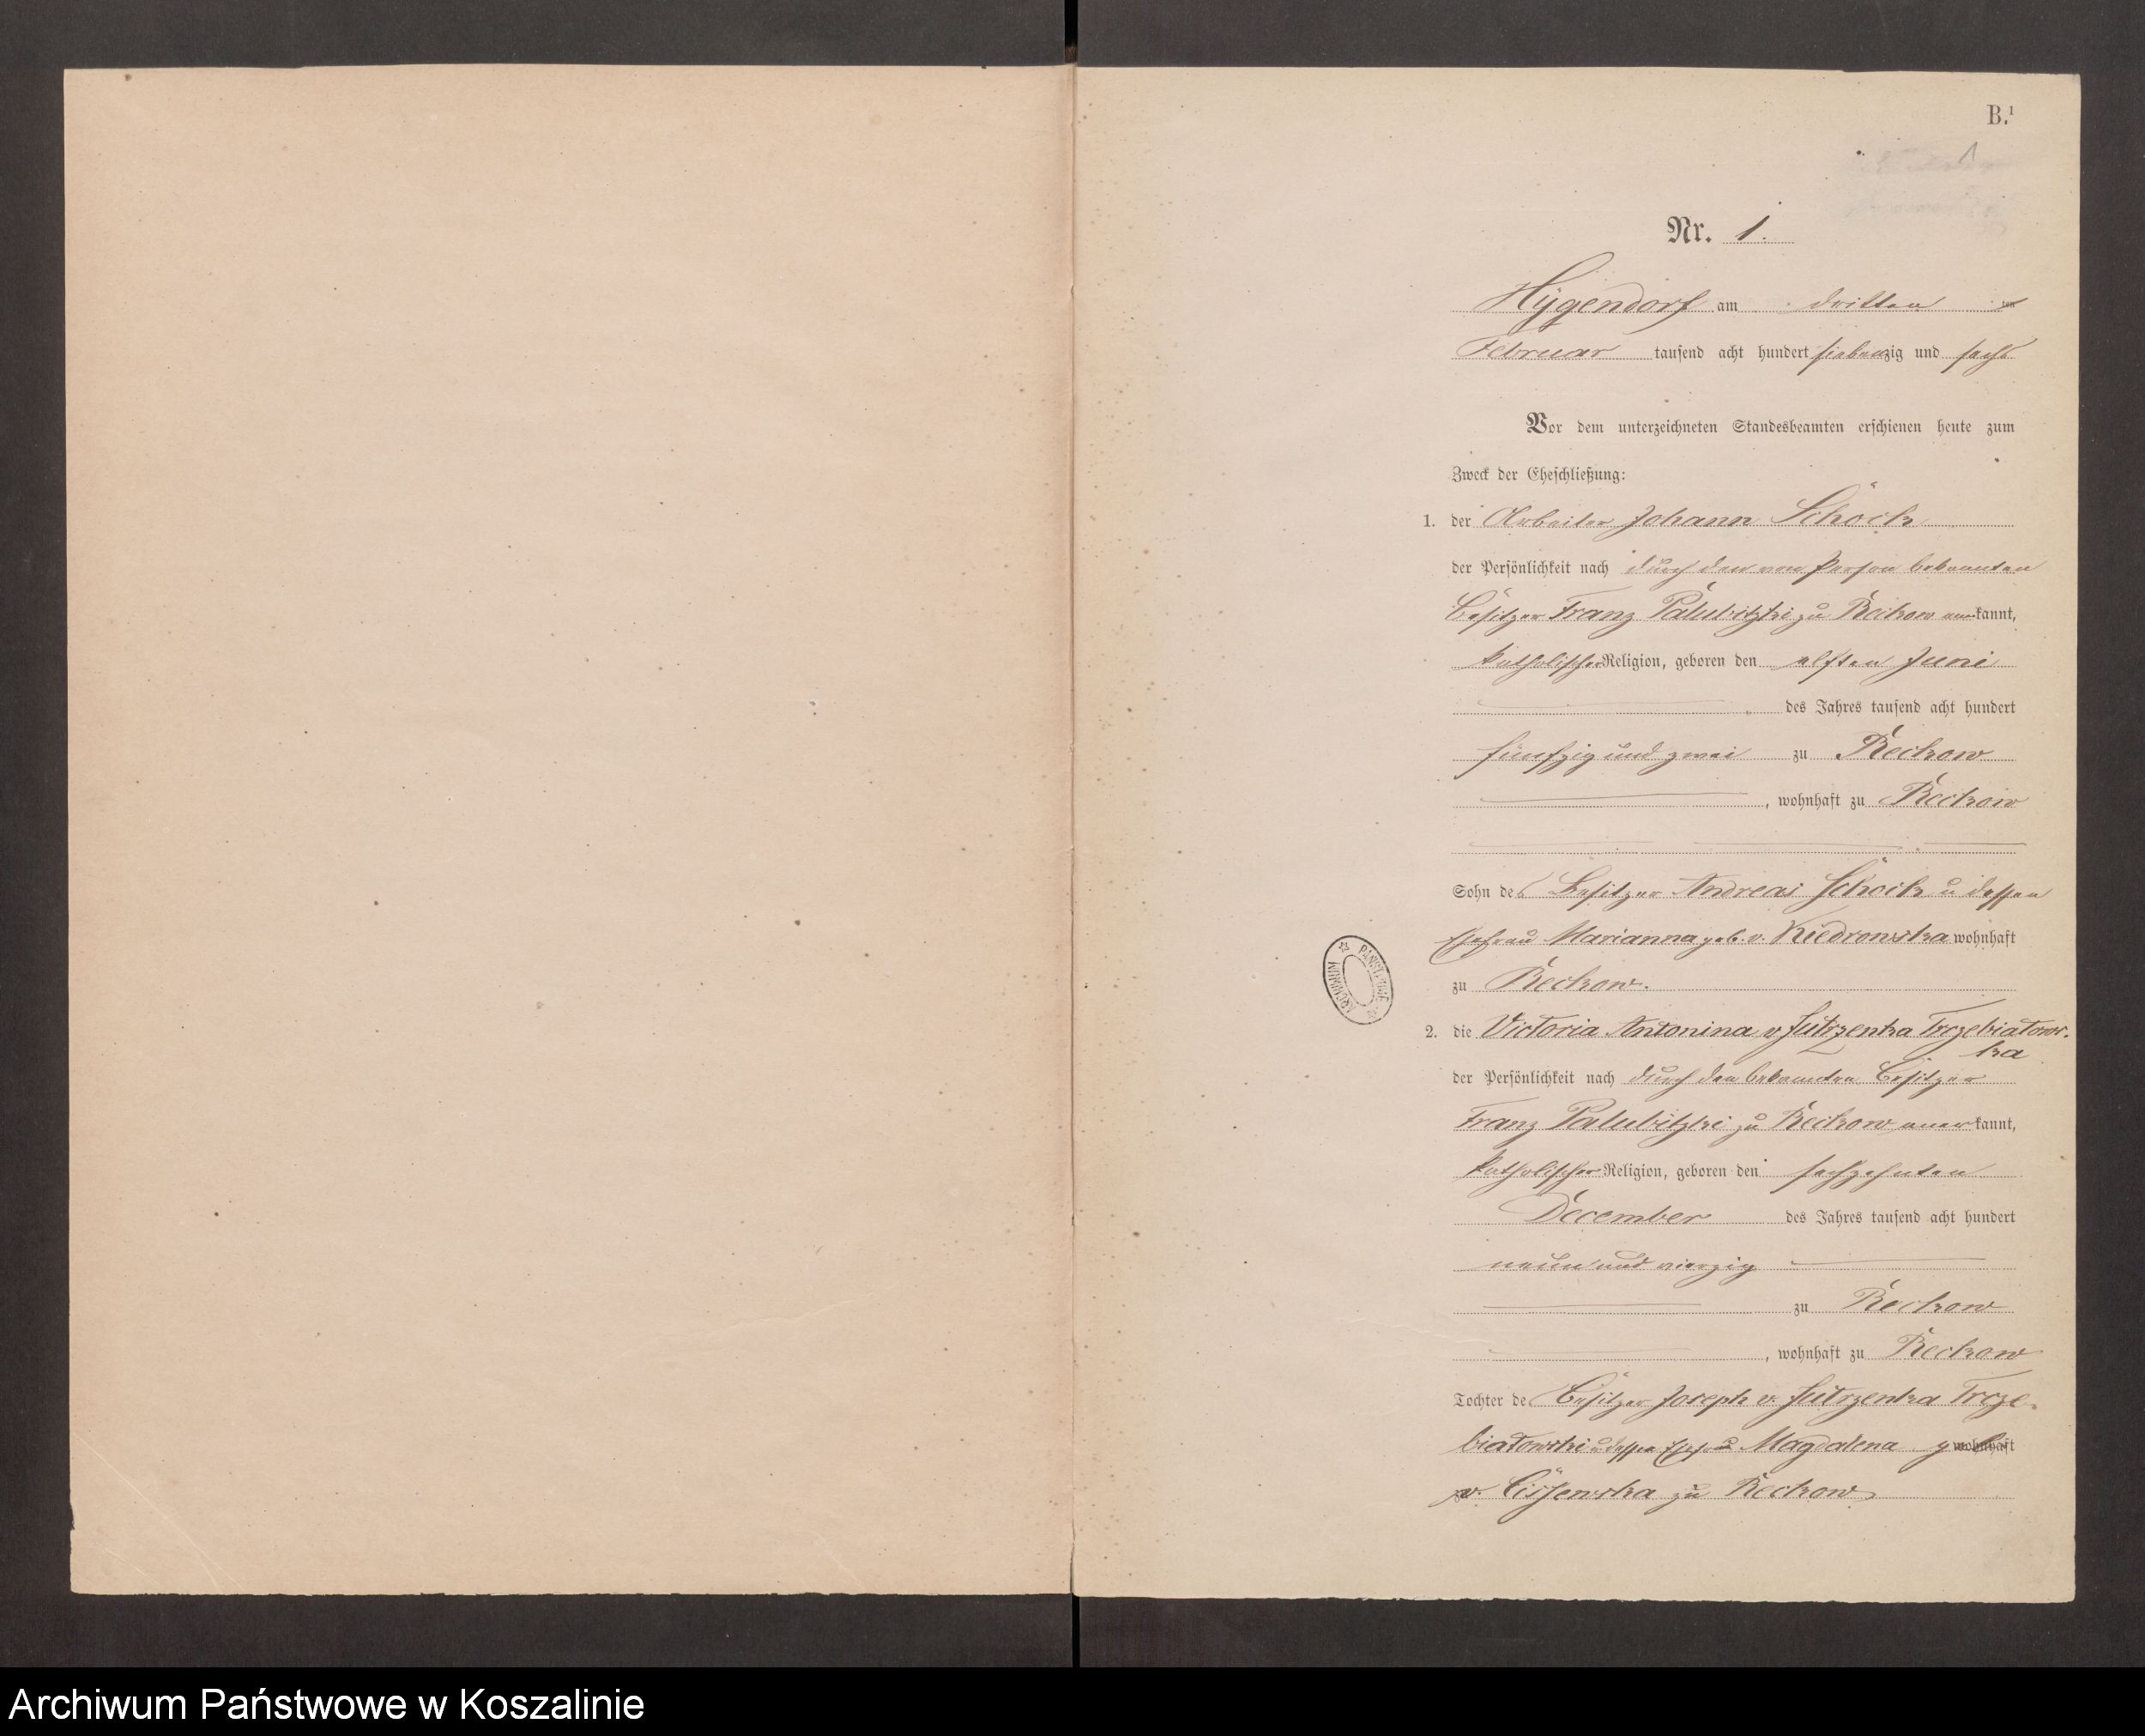 B.¹
1
Nr. 1.
Hÿgendorf am dritten
Februar tausend acht hundert siebenzig und sechs
Vor dem unterzeichneten Standesbeamten erschienen heute zum
Zweck der Eheschließung:
1. der Arbeiter Johann Schöck
der Persönlichkeit nach durch den von Person bekannten
Besitzer Franz Palubitzki zu Reckow anerkannt,
katholischer Religion, geboren den elften Juni
des Jahres tausend acht hundert
fünfzig und zwei zu Reckow
, wohnhaft zu Reckow
Sohn des Besitzer Andreas Schöck u dessen
Ehefrau Marianna geb. v. Kiedrowska wohnhaft
zu Reckow.
ARCHIWUM PAŃSTWOWE
2. die Victoria Antonina v Jutrzenka Trzebiatows-
ka
der Persönlichkeit nach durch den bekannten Besitzer
Franz Palubitzki zu Reckow anerkannt,
katholischer Religion, geboren den sechzehnten
December des Jahres tausend acht hundert
neun und vierzig
zu Reckow
, wohnhaft zu Reckow
Tochter des Besitzer Joseph v. Jutrzenka Trze-
biatowski u dessen Ehefrau Magdalena geb wohnhaft
v. Cissewska zu Reckow
Archiwum Państwowe w Koszalinie